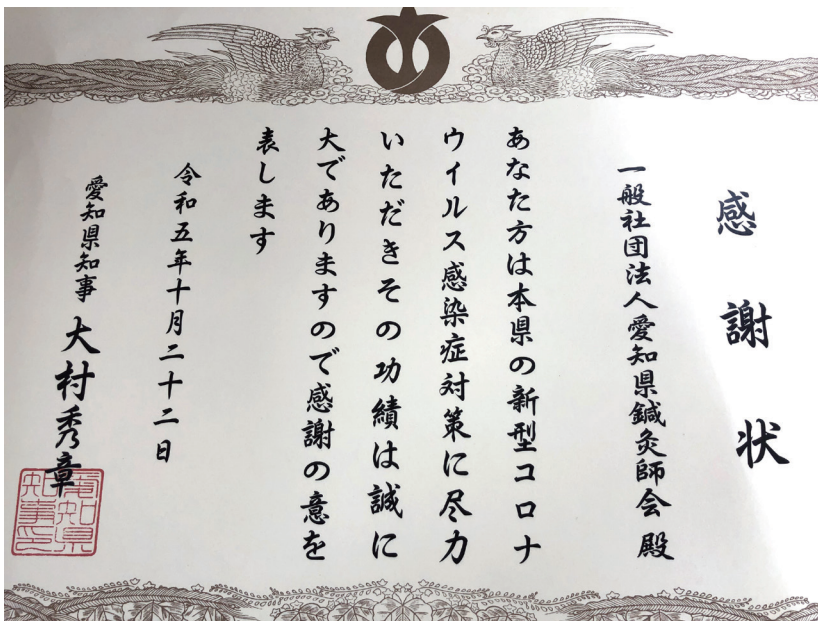 感謝状
一般社団法人愛知県鍼灸師会 殿
あなた方は本県の新型コロナ
ウイルス感染症対策に尽力
いただきその功績は誠に
大でありますので感謝の意を
表します
令和五年十月二十二日
愛知県知事 大村秀章
愛知県知事之印